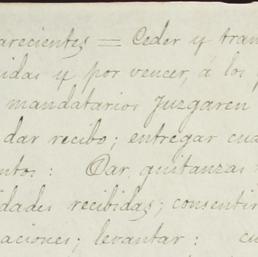 arecientes = Ceder y tran
idas y por vencer, á los
mandatarios juzgaren
dar recibo; entregar cua
ntos: Dar, quitanzas
idades recibidas; consentir
aciones; levantar: cu